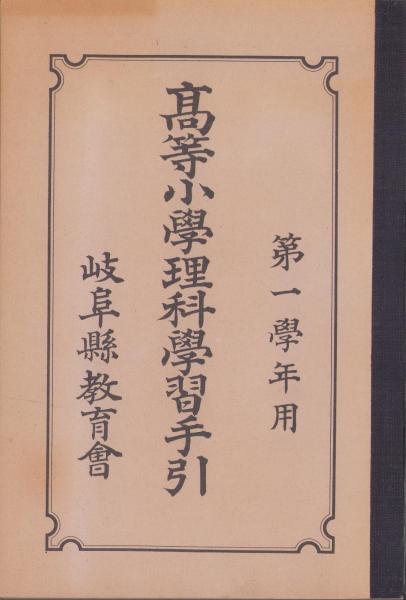 第一學年用
高等小學理科學習手引
岐阜縣教育會